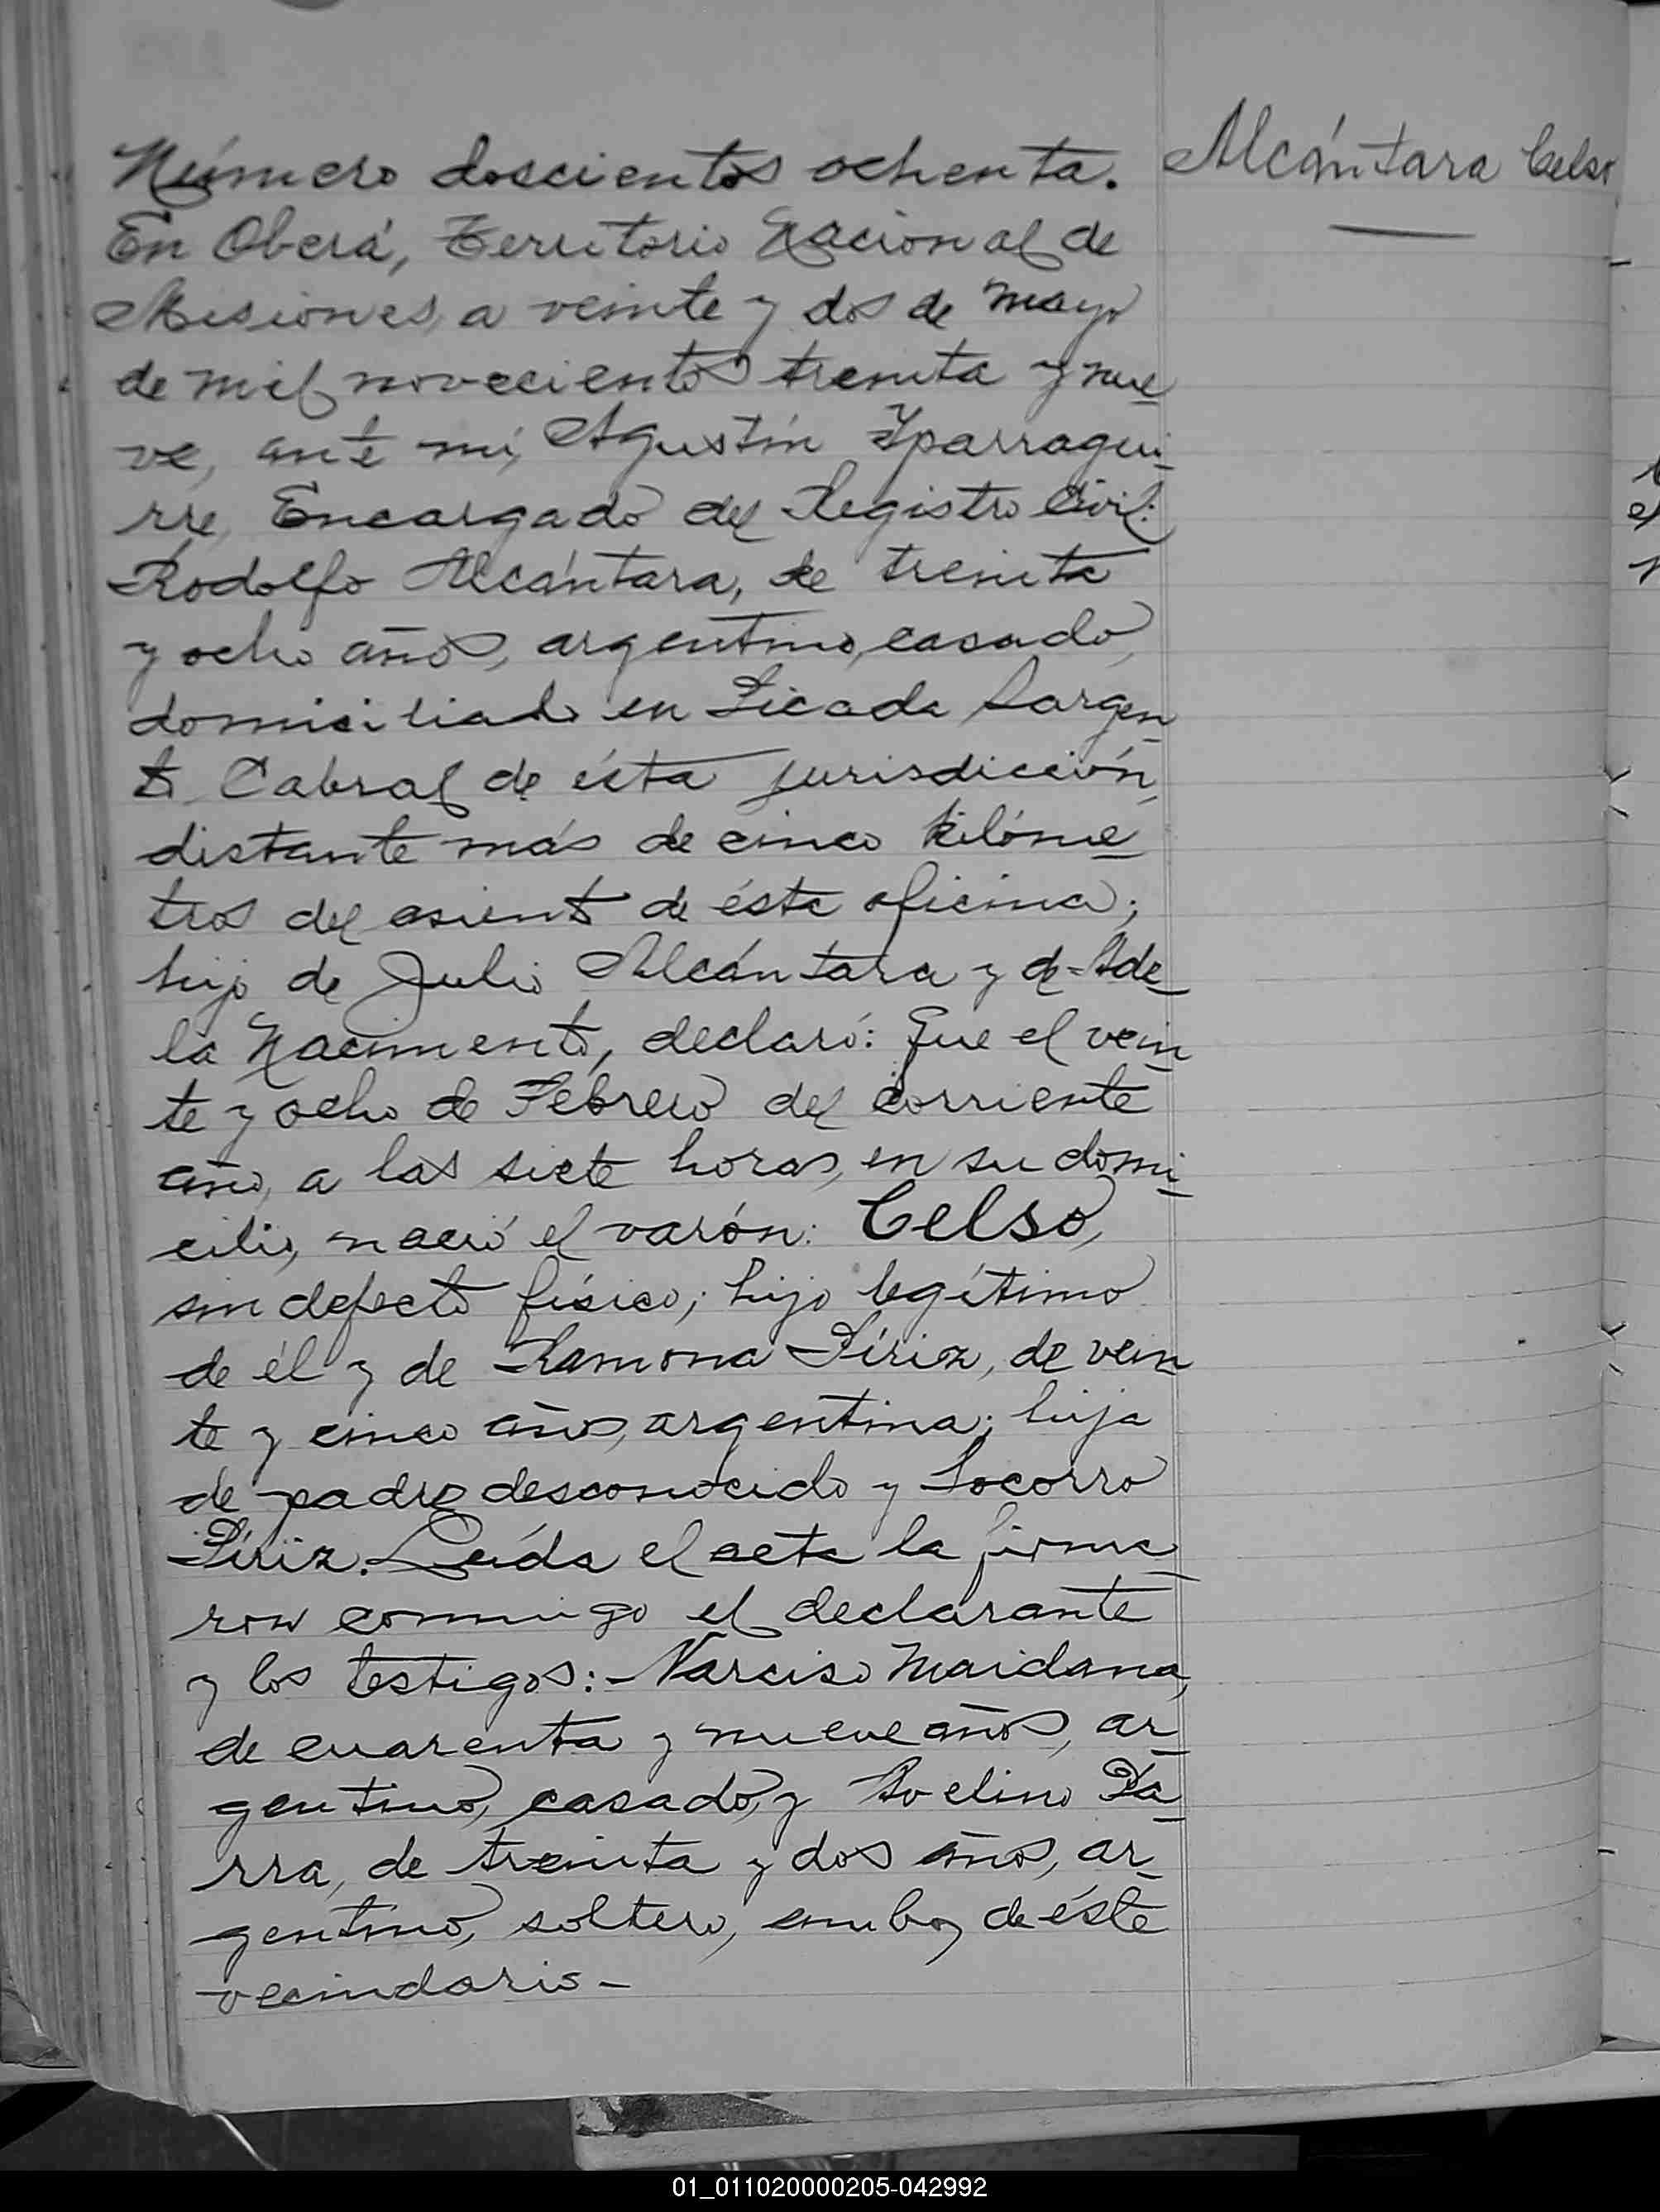 Número doscientos ochenta.
Alcántara Celso
En Oberá, Territorio Nacional de
Misiones, a veinte y dos de mayo
de mil novecientos treinta y nue
ve, ante mí, Agustín Yparragui
rre, Encargado del Registro Civil:
Rodolfo Alcántara, de treinta
y ocho años, argentino, casado,
domiciliado en Picada Sargen
to Cabral de ésta jurisdicción,
distante más de cinco kilóme
tros del asiento de ésta oficina;
hijo de Julio Alcántara y de Ade
la Nacimento, declaró: Que el vein
te y ocho de Febrero del corriente
año, a las siete horas, en su domi
cilio, nació el varón: Celso,
sin defecto físico; hijo legítimo
de él y de Ramona Píriz, de vein
te y cinco años, argentina; hija
de padre desconocido y Socorro
Píriz. Leída el acta la firma
ron conmigo el declarante
y los testigos: Narciso Maidana,
de cuarenta y nueve años, ar
gentino, casado, y Avelino Pa
rra, de treinta y dos años, ar
gentino, soltero, ambos de éste
vecindario -
01_011020000205-042992